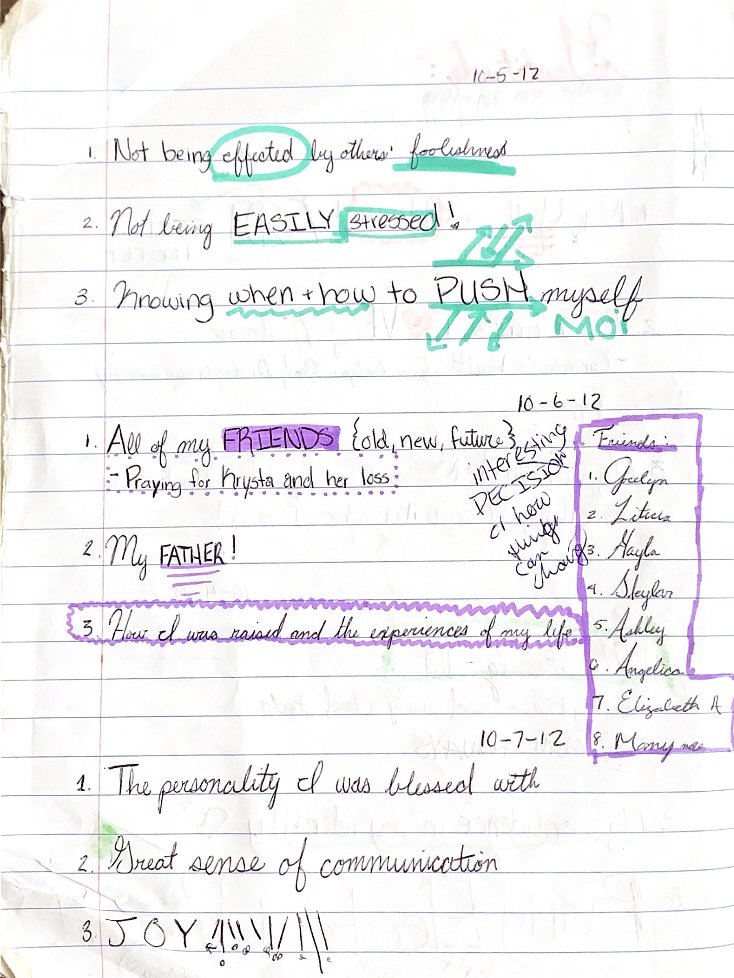 10-5-12
1. Not being effected by others' foolishness
2. Not being EASILY stressed!
3. Knowing when + how to PUSH myself
MOi
10-6-12
1. All of my FRIENDS {old, new, future}
- Praying for Krysta and her loss
interesting
DECISION
how
things
can
change
2. My FATHER!
3. How I was raised and the experiences of my life
Friends:
1. Jocelyn
2. Leticia
3. Kayla
4. Skylar
5. Ashley
6. Angelica
7. Elizabeth A
8. Many more
10-7-12
1. The personality I was blessed with
2. Great sense of communication
3. JOY!!!!!!!!!!